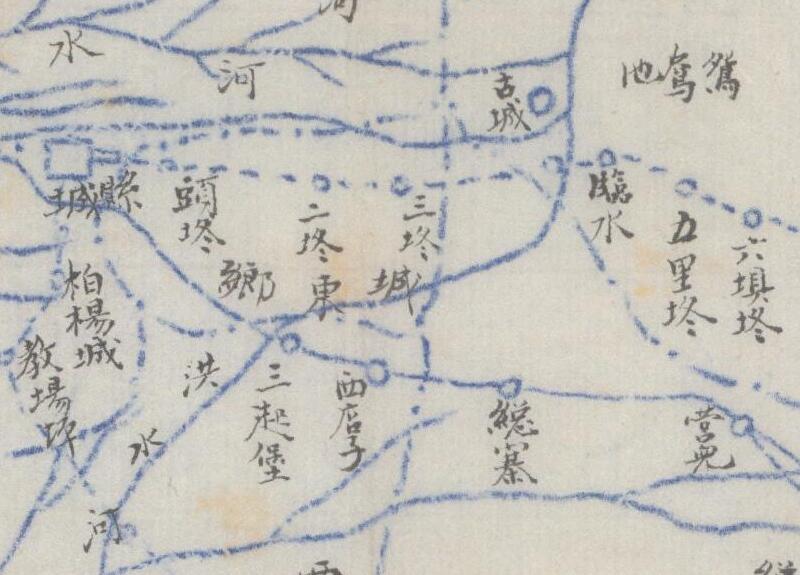 河
水
河
古城
鴛鴦池
縣城
頭墩
二墩
三墩
臨水
五里墩
六壩墩
城東鄉
柏楊城
教場
洪水河
三起堡
西店子
總寨
營兒